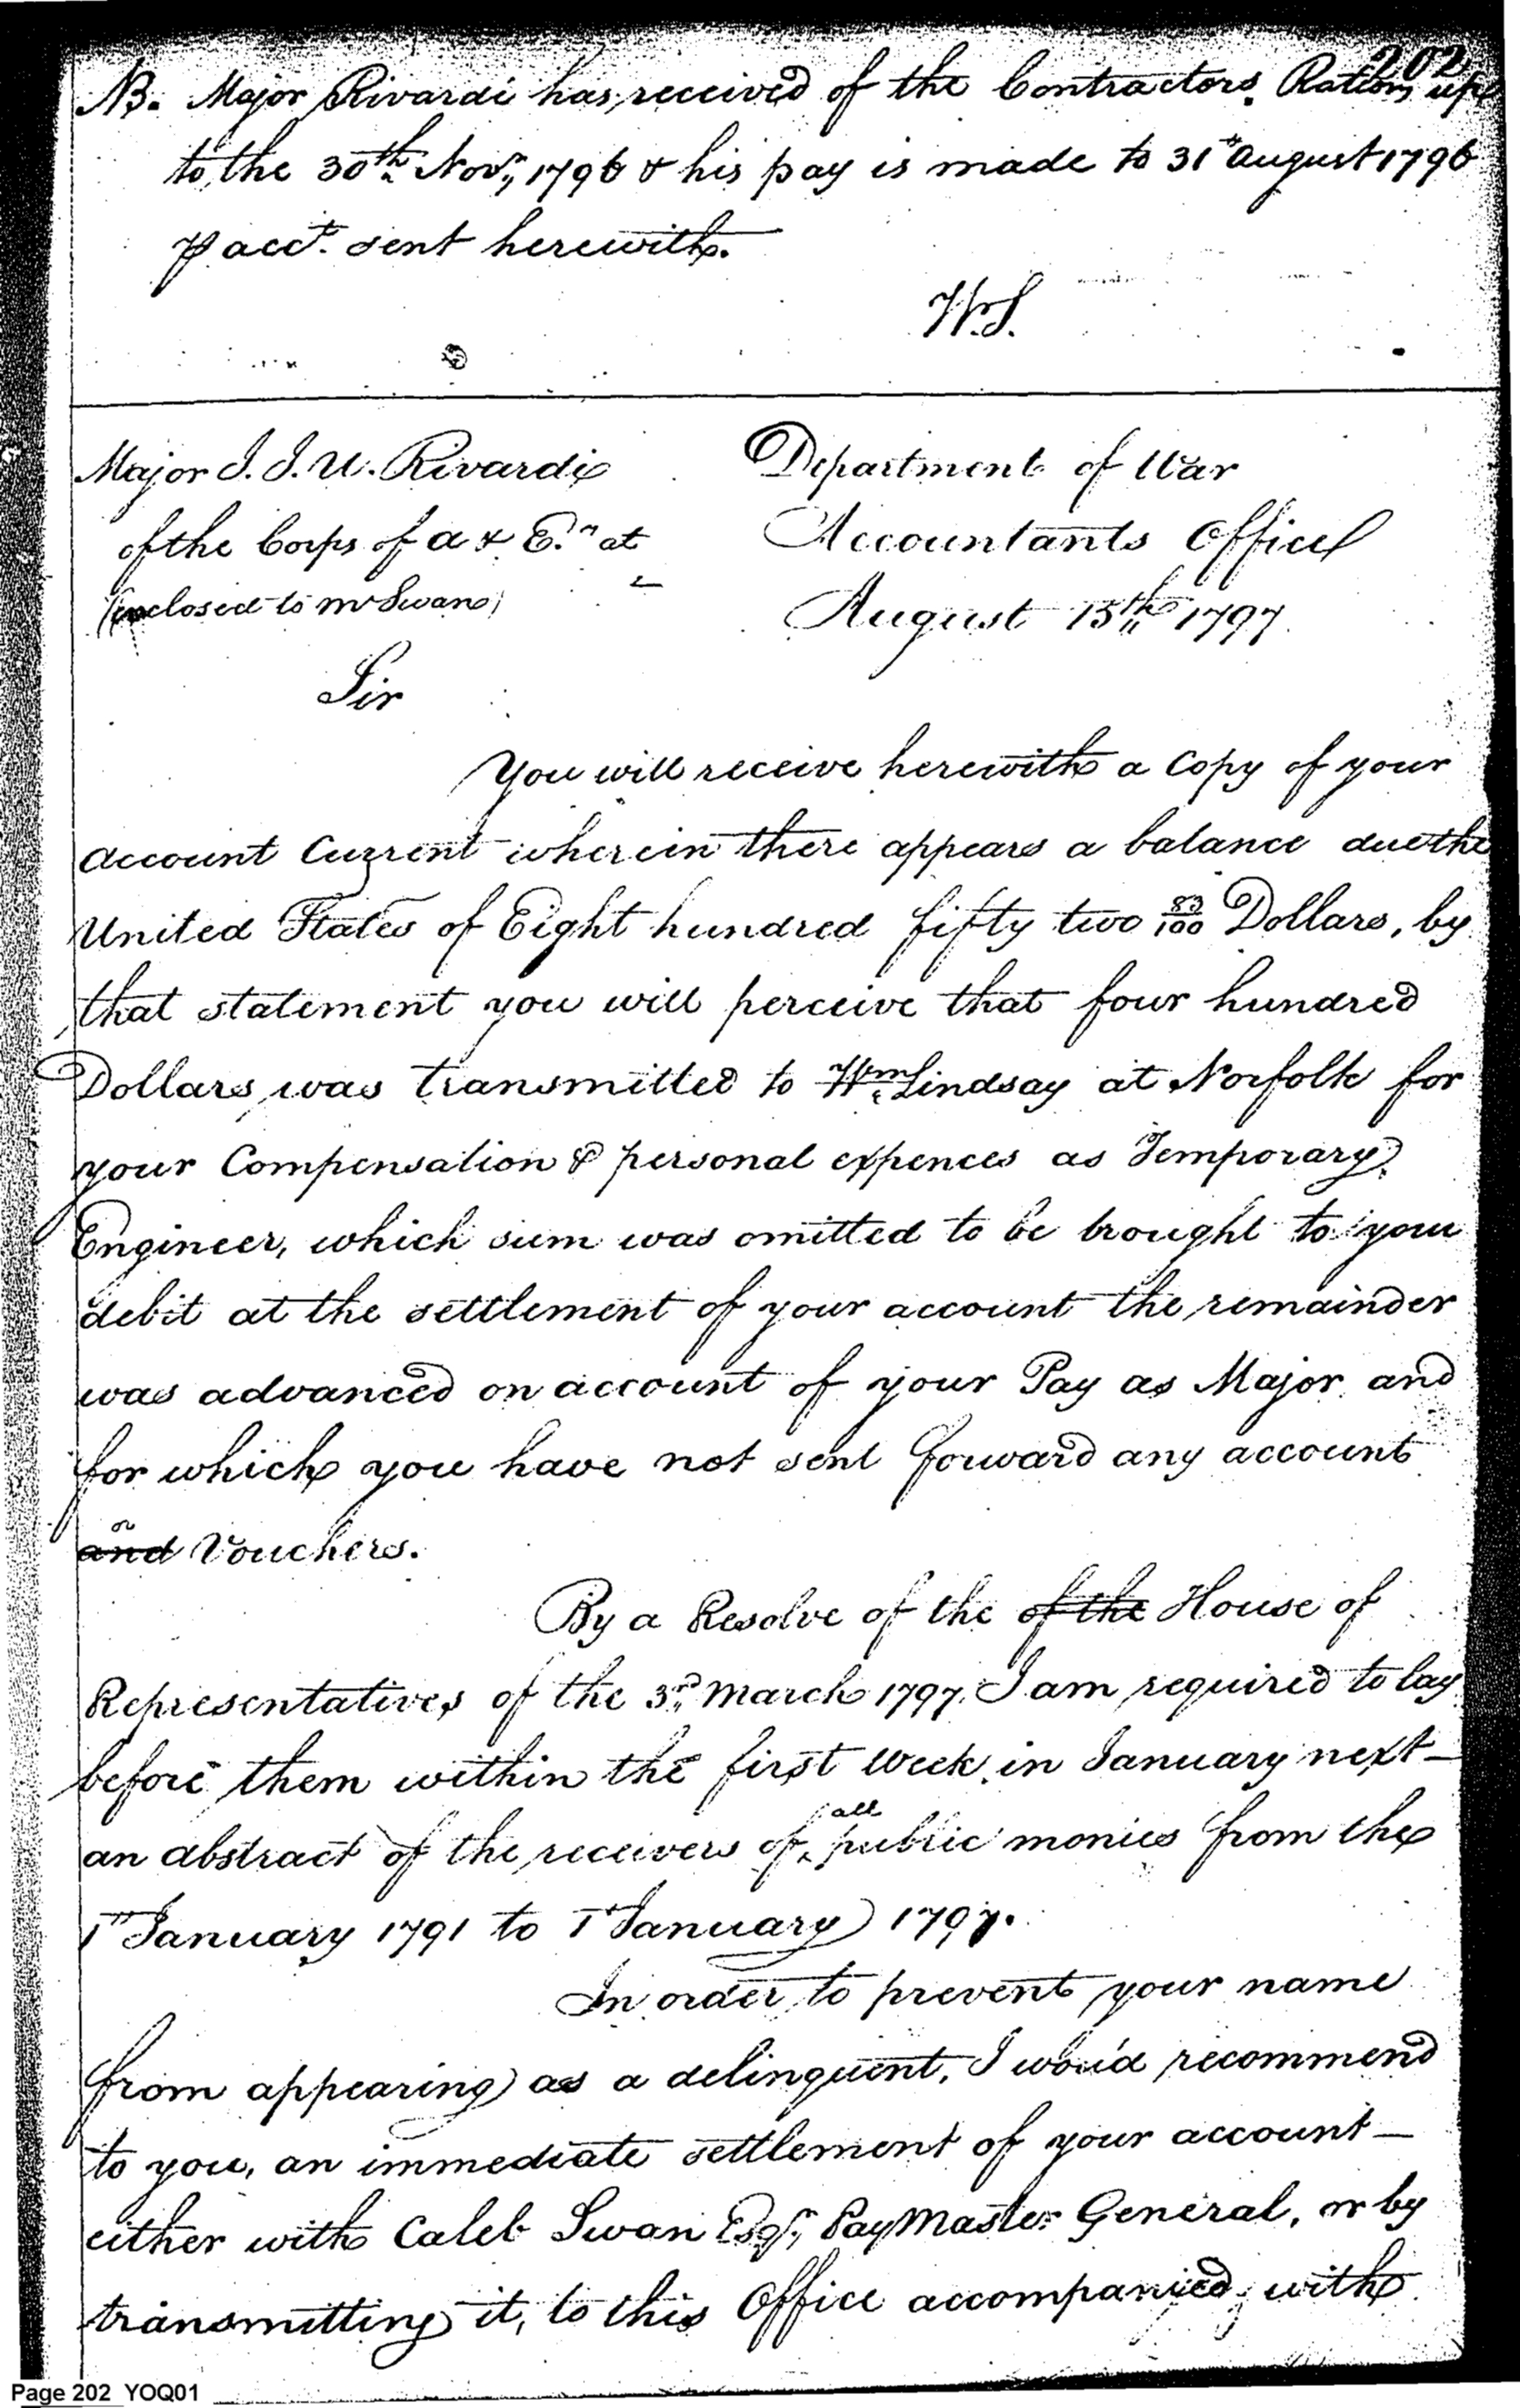 202
NB. Major Rivardi has received of the Contractors Rations up
to the 30th Novr, 1796 & his pay is made to 31st August 1796
⅌ acct. sent herewith.
W.S.
Major J. J. U. Rivardi
of the Corps of A & E.rs at
(enclosed to Mr Swan)
Department of War
Accountants Office
August 15th 1797.
Sir
You will receive herewith a Copy of your
Account Current wherein there appears a balance due the
United States of Eight hundred fifty two 83/100 Dollars, by
that statement you will perceive that four hundred
Dollars was transmitted to Wm. Lindsay at Norfolk for
your Compensation & personal expences as Temporary
Engineer, which sum was omitted to be brought to your
debit at the settlement of your account the remainder
was advanced on account of your Pay as Major and
for which you have not sent forward any account
or
and Vouchers.
By a Resolve of the of the House of
Representatives of the 3rd March 1797. I am required to lay
before them within the first Week in January next—
all
an abstract of the receivers of public monies from the
1st January 1791 to 1st January 1797.
In order to prevent your name
from appearing as a delinquent, I would recommend
to you, an immediate settlement of your account—
either with Caleb Swan Esqr, PayMaster General, or by
transmitting it, to this Office accompanied with
Page 202 YOQ01